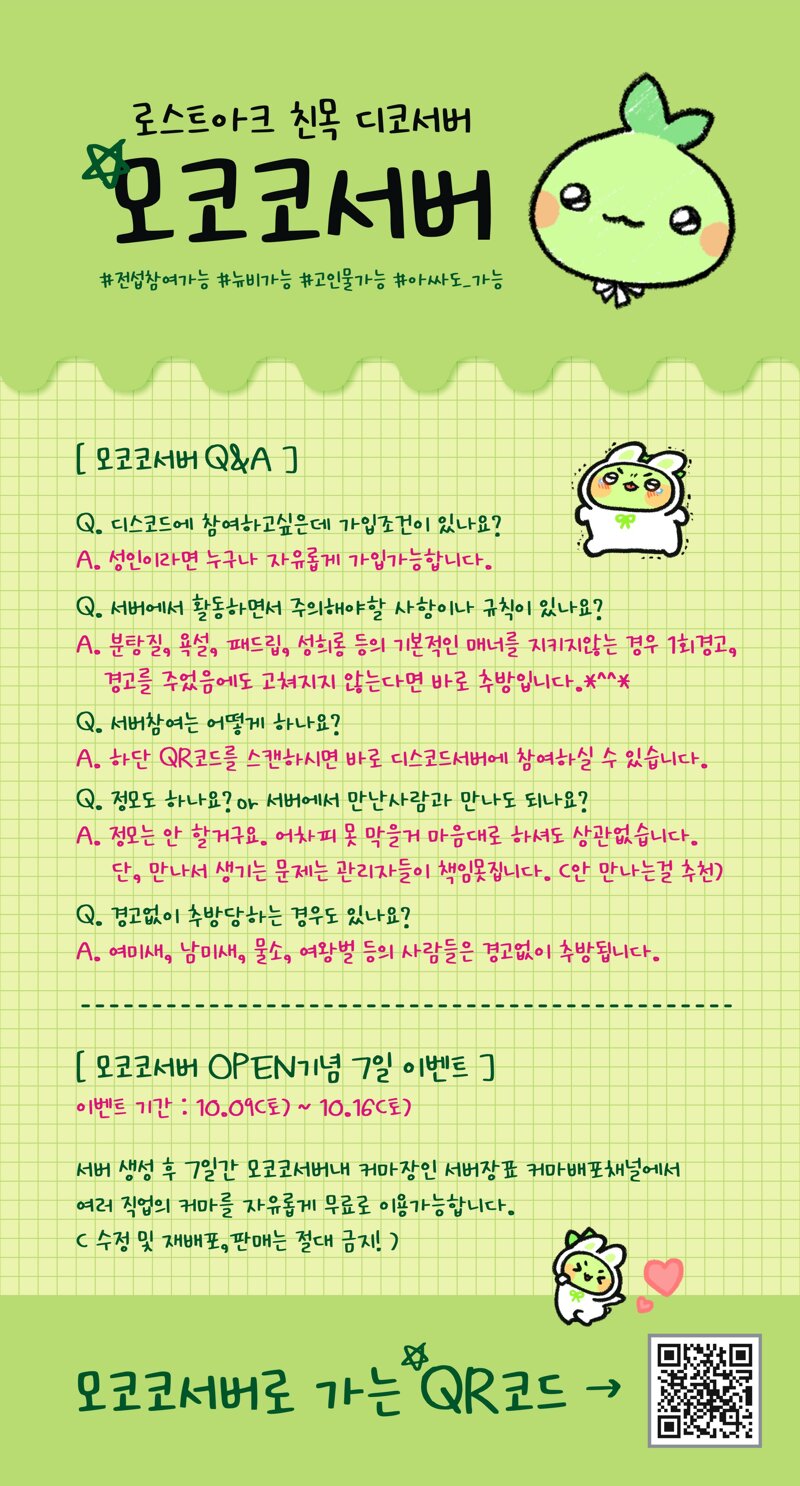 로스트아크 친목 디코서버
모코코서버
#전섭참여가능 #뉴비가능 #고인물가능 #아싸도_가능
[ 모코코서버 Q&A ]
Q. 디스코드에 참여하고싶은데 가입조건이 있나요?
A. 성인이라면 누구나 자유롭게 가입가능합니다.
Q. 서버에서 활동하면서 주의해야할 사항이나 규칙이 있나요?
A. 분탕질, 욕설, 패드립, 성희롱 등의 기본적인 매너를 지키지않는 경우 1회경고,
경고를 주었음에도 고쳐지지 않는다면 바로 추방입니다.*^^*
Q. 서버참여는 어떻게 하나요?
A. 하단 QR코드를 스캔하시면 바로 디스코드서버에 참여하실 수 있습니다.
Q. 정모도 하나요? or 서버에서 만난사람과 만나도 되나요?
A. 정모는 안 할거구요. 어차피 못 막을거 마음대로 하셔도 상관없습니다.
단, 만나서 생기는 문제는 관리자들이 책임못집니다. (안 만나는걸 추천)
Q. 경고없이 추방당하는 경우도 있나요?
A. 여미새, 남미새, 물소, 여왕벌 등의 사람들은 경고없이 추방됩니다.
[ 모코코서버 OPEN기념 7일 이벤트 ]
이벤트 기간 : 10.09(토) ~ 10.16(토)
서버 생성 후 7일간 모코코서버내 커마장인 서버장표 커마배포채널에서
여러 직업의 커마를 자유롭게 무료로 이용가능합니다.
( 수정 및 재배포,판매는 절대 금지! )
모코코서버로 가는 QR코드 →